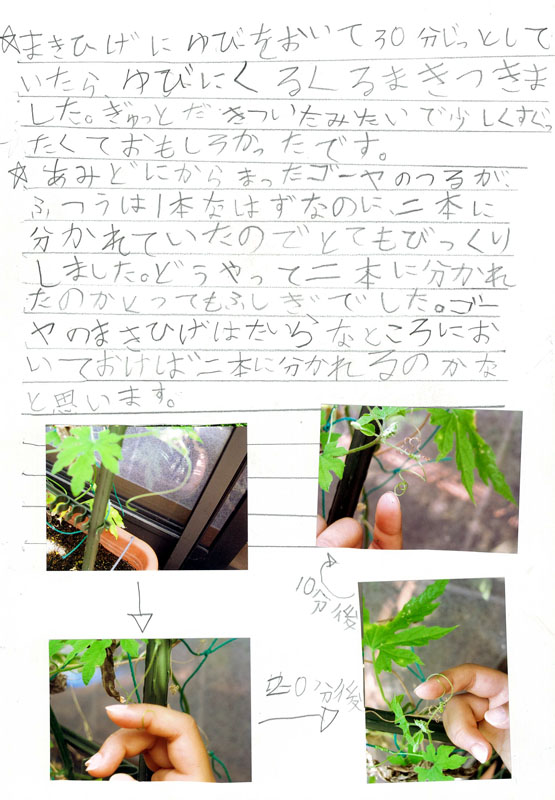 ☆まきひげにゆびをおいて30分じっとして
いたら、ゆびにくるくるまきつきま
した。ぎゅっとだきついたみたいで少しくすぐっ
たくておもしろかったです。
☆あみどにからまったゴーヤのつるが、
ふつうは1本なはずなのに、二本に
分かれていたのでとてもびっくり
しました。どうやって二本に分かれ
たのかとってもふしぎでした。ゴー
ヤのまきひげはたいらなところにお
いておけば二本に分かれるのかな
と思います。
10分後
20分後